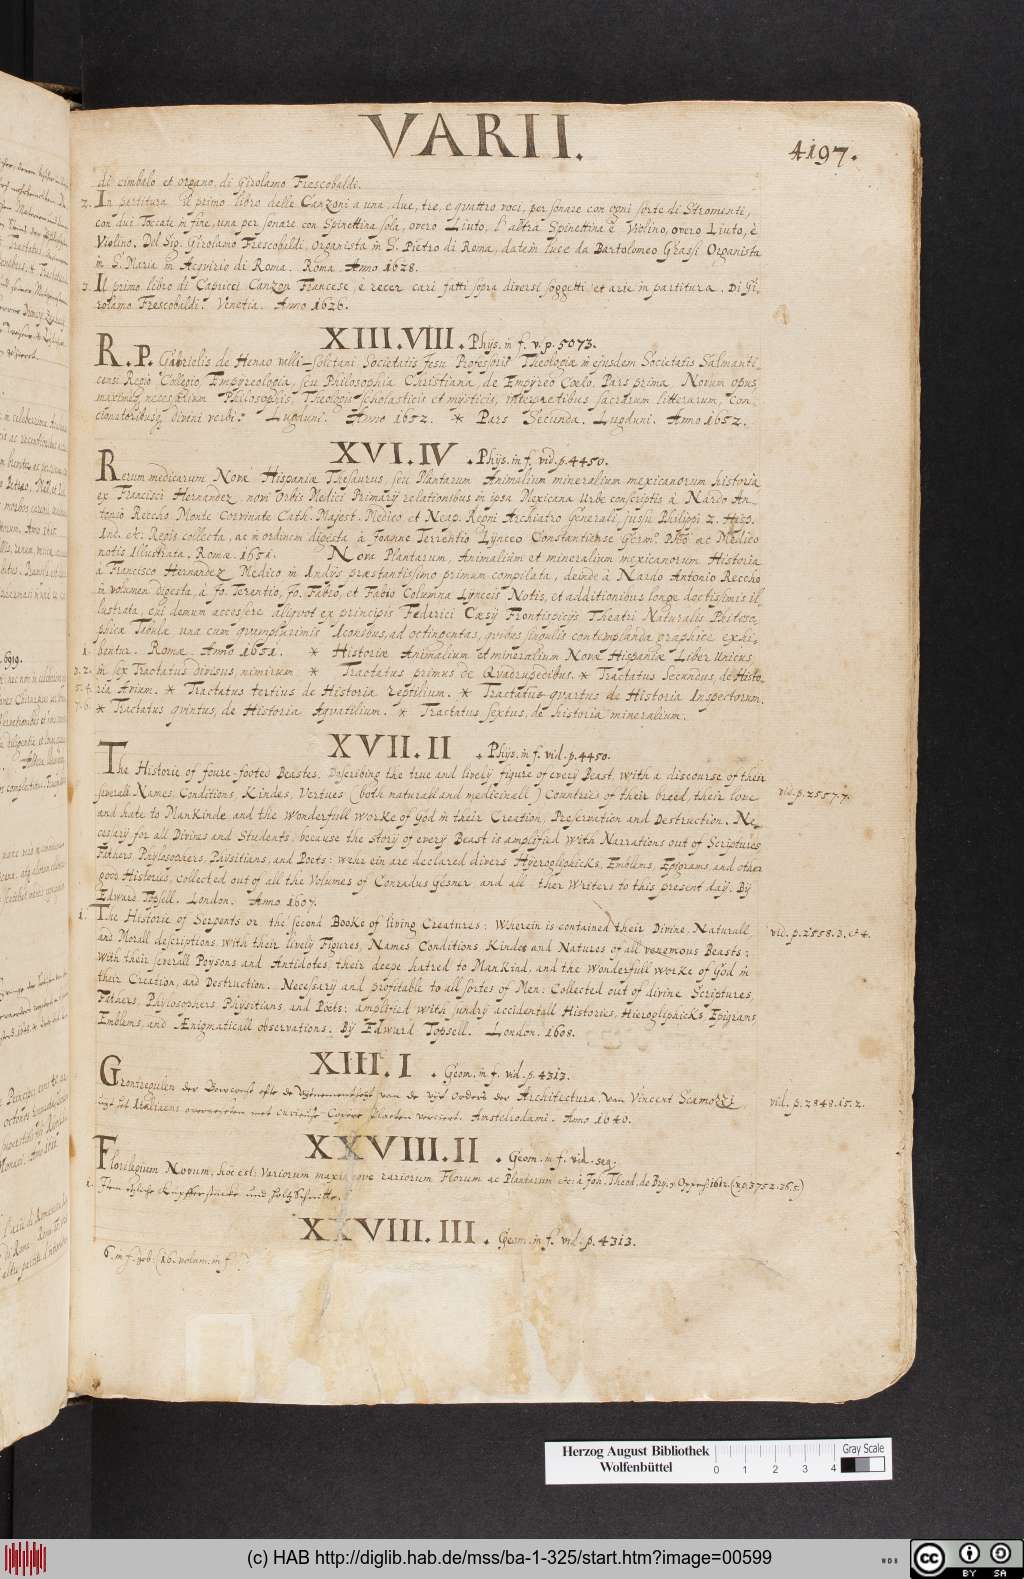 VARII.
4197.
di cimbalo et organo di Girolamo Frescobaldi.
2. In partitura il primo libro delle Canzoni a una, due, tre, e quattro voci, per sonare con ogni sorte di Stromenti,
con dui Toccate in fine, una per sonare con Spinettina sola, overo Liuto, l'altra Spinettina è Violino, overo Liuto, è
Violino. Del Sig. Girolamo Frescobaldi, Organista in S. Pietro di Roma, datein luce da Bartolomeo Grassi Organista
in S. Maria in Acqvirio di Roma. Roma. Anno 1628.
3. Il primo libro di Capricci Canzon Francese, e recer cari fatti sopra diversi soggetti et arie in partitura. Di Gi-
rolamo Frescobaldi. Venetia. Anno 1626.
XIII.VIII. Phys. in f. v. p. 5073.
R. P. Gabrielis de Henao valli-soletani Societatis Jesu Professoris Theologiæ in ejusdem Societatis Salmanti-
censi Regio Collegio, Empyreologia, seu Philosophia Christiana, de Empyreo Cœlo. Pars prima. Novum opus
maximè necessarium Philosophis, Theologis scholasticis et mysticis, interpretibus sacrarum litterarum, con-
cionatoribusq divini verbi. Lugduni. Anno 1652. * Pars Secunda. Lugduni. Anno 1652.
XVI.IV. Phys. in f. vid. p. 4450.
Rerum medicarum Novæ Hispaniæ Thesaurus, seu Plantarum Animalium mineralium mexicanorum historia
ex Francisci Hernandez, novi Orbis Medici Primarij relationibus in ipsa Mexicana Urbe conscriptis à Nardo An-
tonio Reccho Monte Corvinate Cath. Majest. Medico et Neap. Regni Archiatro Generali, jussu Philippi 2. Hisp.
Ind. etc. Regis collecta, ac in ordinem digesta à Joanne Terrentio Lynceo Constantiense Germ. ac Medico
notis Illustrata. Romæ. 1651. Nova Plantarum, Animalium et mineralium mexicanorum Historia
à Francisco Hernandez Medico in Indijs præstantissimo primum compilata, deinde à Nardo Antonio Reccho
in volumen digesta, à Jo. Terentio, Jo. Fabro, et Fabio Columna Lynceis Notis, et additionibus longe doctissimis il-
lustrata, cui demum accessere aliquot ex principis Federici Cæsij Frontispicijs Theatri Naturalis Philoso-
phicæ Tabulæ una cum quamplurimis Iconibus, ad octingentas, quibus singulis contemplanda graphicè exhi-
1. bentur. Romæ. Anno 1651. * Historiæ Animalium et mineralium Novæ Hispaniæ Liber unicus
2. in sex Tractatus divisus nimirum * Tractatus primus de Quadrupedibus. * Tractatus Secundus, de Histo-
5. 4. ria Avium. * Tractatus tertius de Historia reptilium. * Tractatus quartus de Historia Insectorum.
7. 6. * Tractatus quintus, de Historia Aquatilium. * Tractatus sextus, de historia mineralium.
XVII.II. Phys. in f. vid. p. 4450.
The Historie of foure-footed Beastes. Describing the true and lively figure of every Beast, with a discourse of their
severall Names, Conditions, Kindes, Vertues (both naturall and medicinall) Countries of their breed, their love
vid. p. 2557.7.
and hate to Mankinde, and the wonderfull worke of God in their Creation, Preservation and Destruction. Ne-
cessary for all Divines and Students, because the story of every Beast is amplified with Narrations out of Scriptures,
Fathers, Phylosophers, Physitians, and Poets: wherein are declared divers Hyerogliphicks, Emblems, Epigrams and other
good Histories, collected out of all the Volumes of Conradus Gesner and all other Writers to this present day. By
Edward Topsell. London. Anno 1607.
1. The Historie of Serpents or the second Booke of living Creatures: Wherein is contained their Divine, Naturall,
vid. p. 2558.3. et 4.
and Morall descriptions, with their lively Figures, Names, Conditions, Kindes and Natures of all venemous Beasts:
with their severall Poysons and Antidotes, their deepe hatred to Mankind, and the Wonderfull worke of God in
their Creation, and Destruction. Necessary and profitable to all sortes of Men: Collected out of divine Scriptures,
Fathers, Phylosophers, Physitians, and Poets: amplified with sundry accidentall Histories, Hierogliphicks, Epigrams,
Emblems, and Ænigmaticall observations. By Edward Topsell. London. 1608.
XIII.I. Geom. in f. vid. p. 4313.
Grontregulen der Bouconst van de vijf Orders der Architectura. van Vincent Scamozzi
vid. p. 2848.15.2.
Italiaens met Copere Plaeten verciert. Amstelodami. Anno 1640.
XXVIII.II. Geom. in f. vid. seq.
Florilegium Novum, hoc est: Variorum rariorum Florum ac Plantarum etc. à Joh. Theod. de Bry. Oppenh. 1612. (x p. 3752.36.5)
XXVIII.III. Geom. in f. vid. p. 4313.
Herzog August Bibliothek
Wolfenbüttel
Gray Scale
0 1 2 3 4
(c) HAB http://diglib.hab.de/mss/ba-1-325/start.htm?image=00599
WDB
cc BY SA